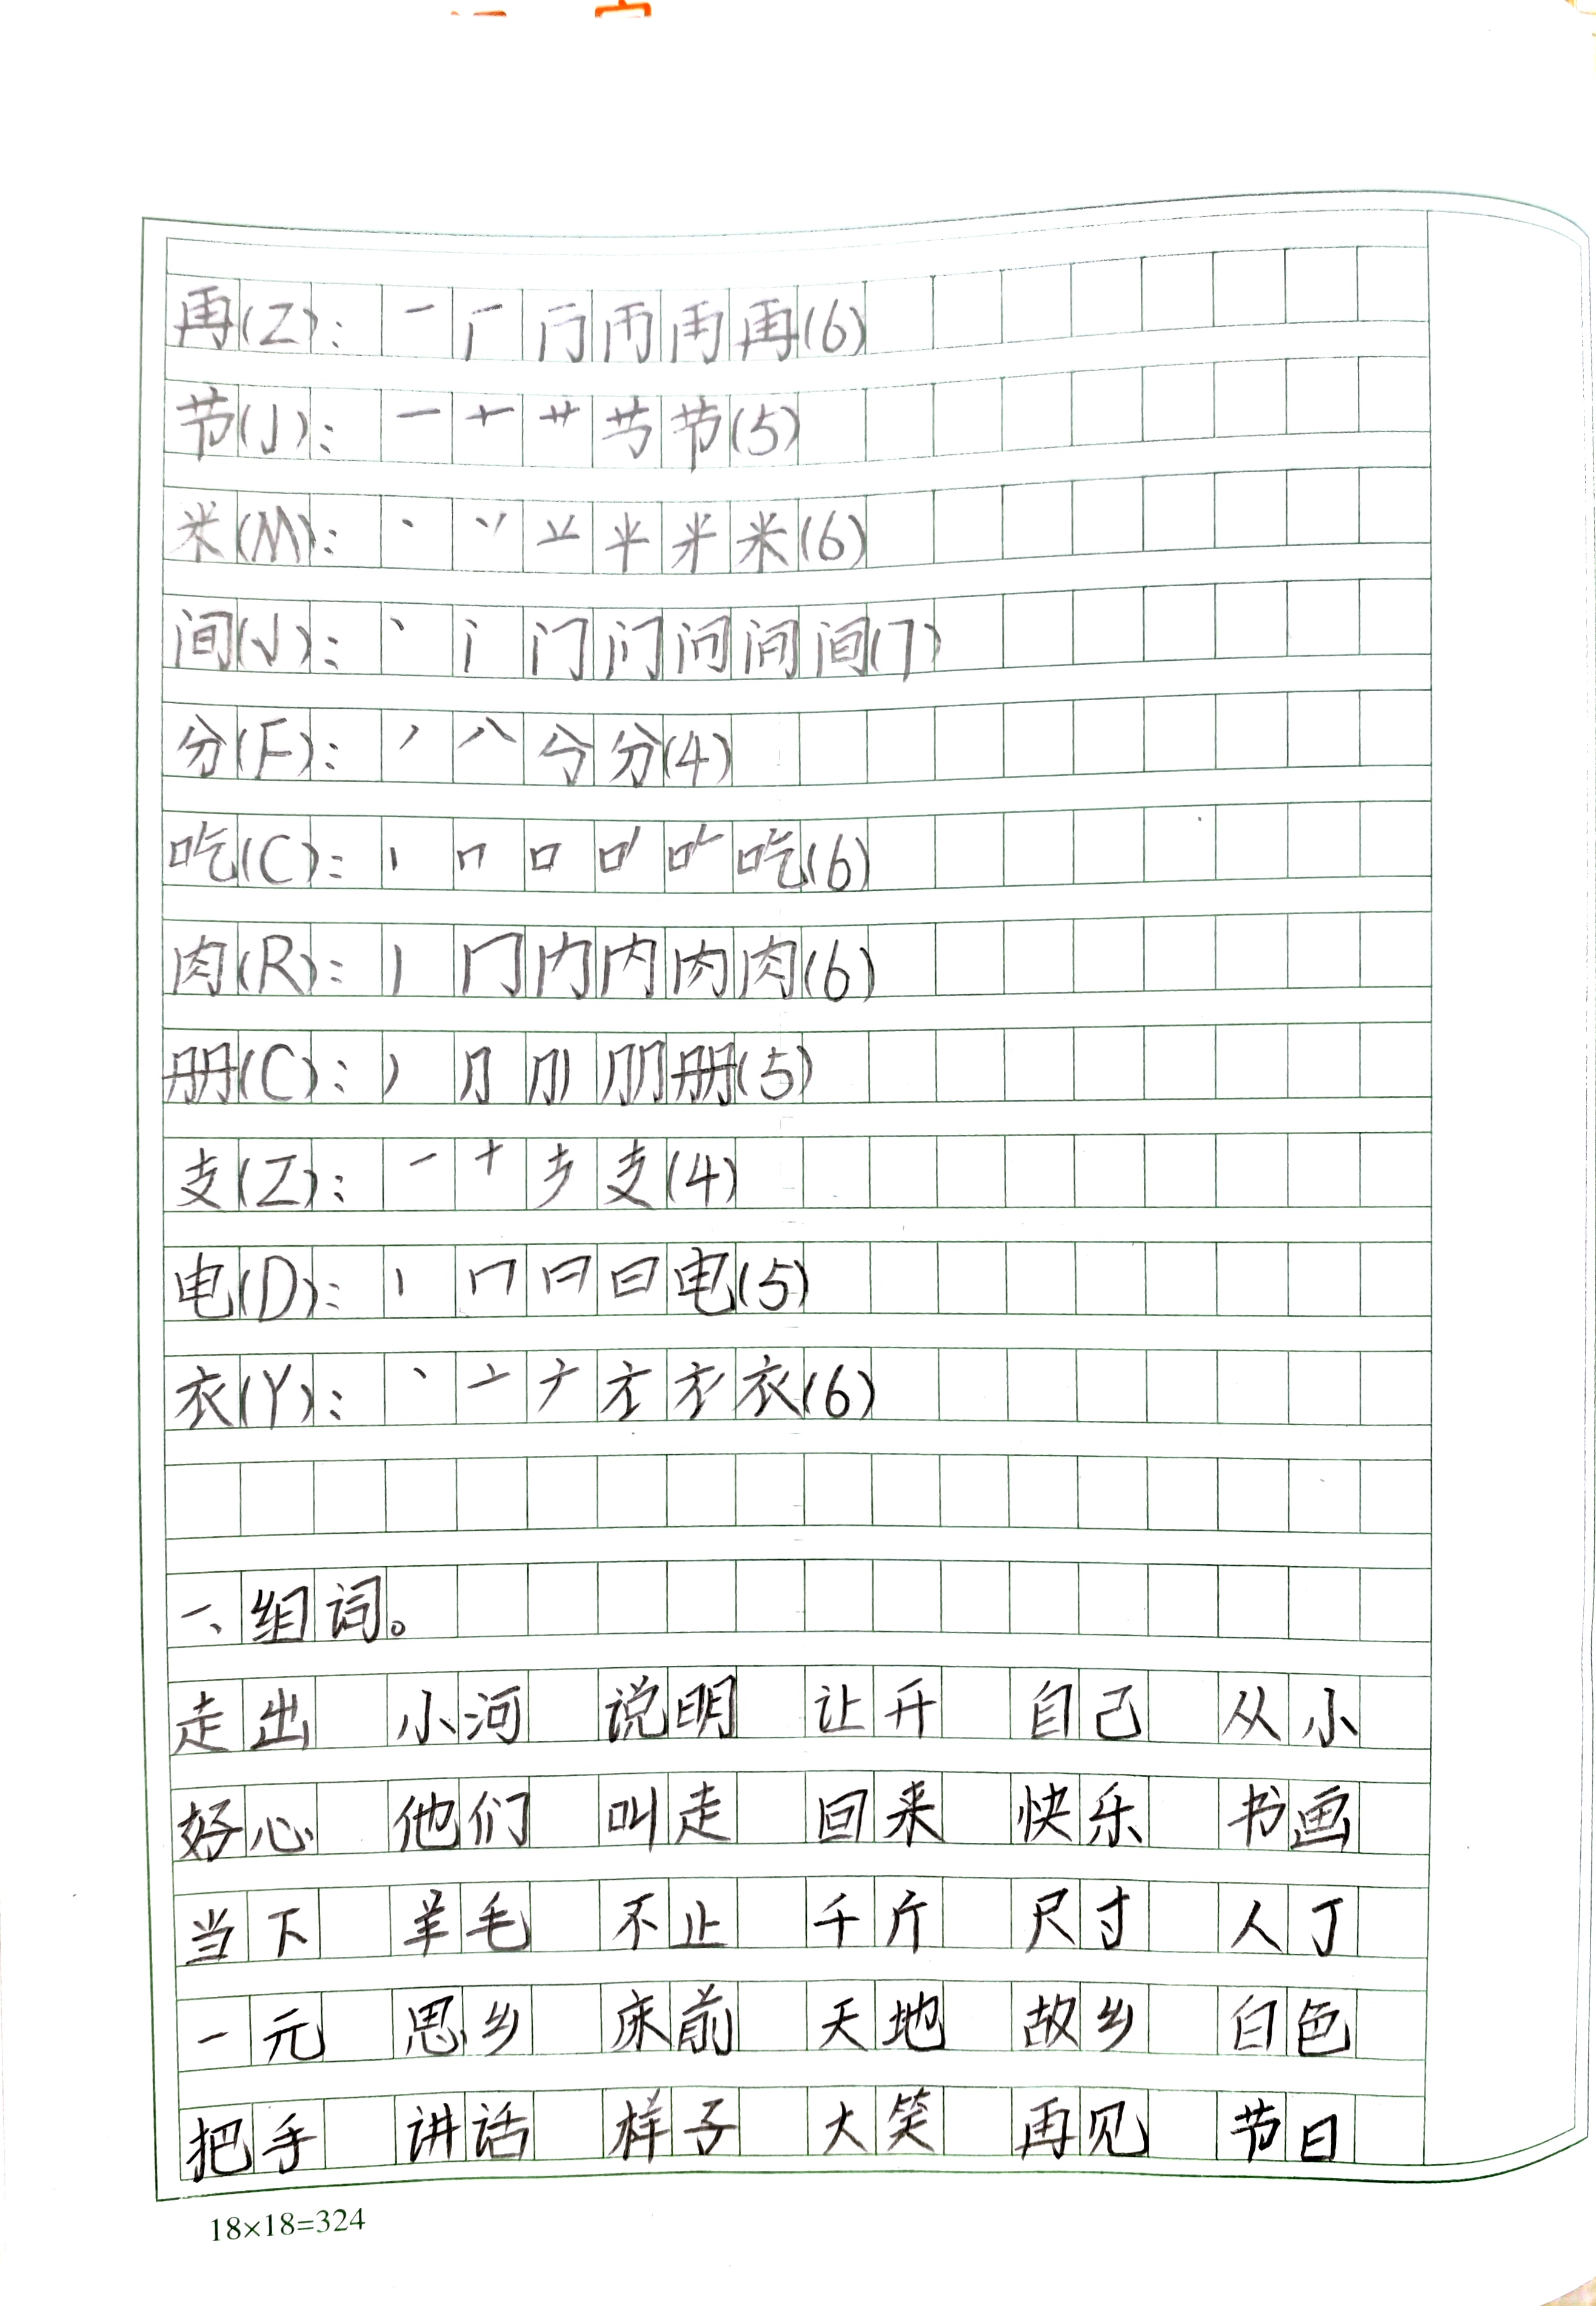 再(Z): 一 厂 冂 帀 冉 再(6)
节(J): 一 十 艹 节(5)
米(M): 丶 丷 䒑 半 米(6)
间(J): 丶 门 问 间(7)
分(F): 丿 八 分(4)
吃(C): 丨 口 吃(6)
肉(R): 丨 冂 内 肉(6)
册(C): 丿 册(5)
支(Z): 一 十 支(4)
电(D): 丨 冂 日 电(5)
衣(Y): 丶 亠 衣(6)
一、组词。
走出 小河 说明 让开 自己 从小
好心 他们 叫走 回来 快乐 书画
当下 羊毛 不止 千斤 尺寸 人丁
一元 思乡 床前 天地 故乡 白色
把手 讲话 样子 大笑 再见 节日
18×18=324